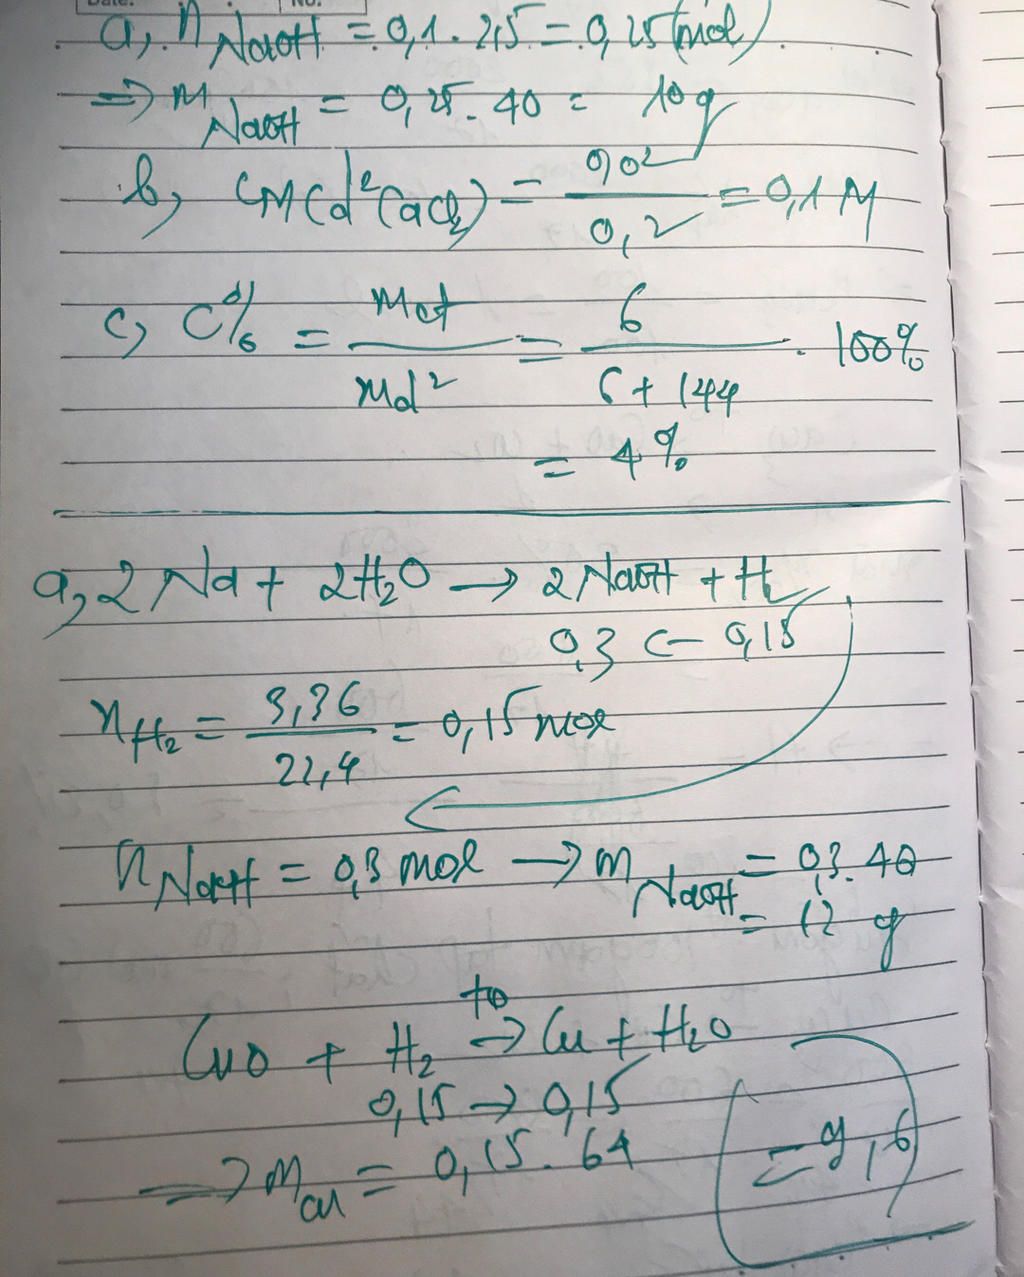 Date: No:
a, n NaOH = 0,1 . 2,5 = 0,25 (mol)
=> m NaOH = 0,25 . 40 = 10 g
b, CM(d² CaCl2) = 0,02 / 0,2 = 0,1 M
c, C% = mct / md² = 6 / 6 + 144 . 100%
= 4%
a, 2Na + 2H2O → 2NaOH + H2
0,3 ← 0,15
nH2 = 3,36 / 22,4 = 0,15 mol
n NaOH = 0,3 mol → m NaOH = 0,3 . 40
= 12 g
to
CuO + H2 → Cu + H2O
0,15 → 0,15
=> m Cu = 0,15 . 64
= 9,6